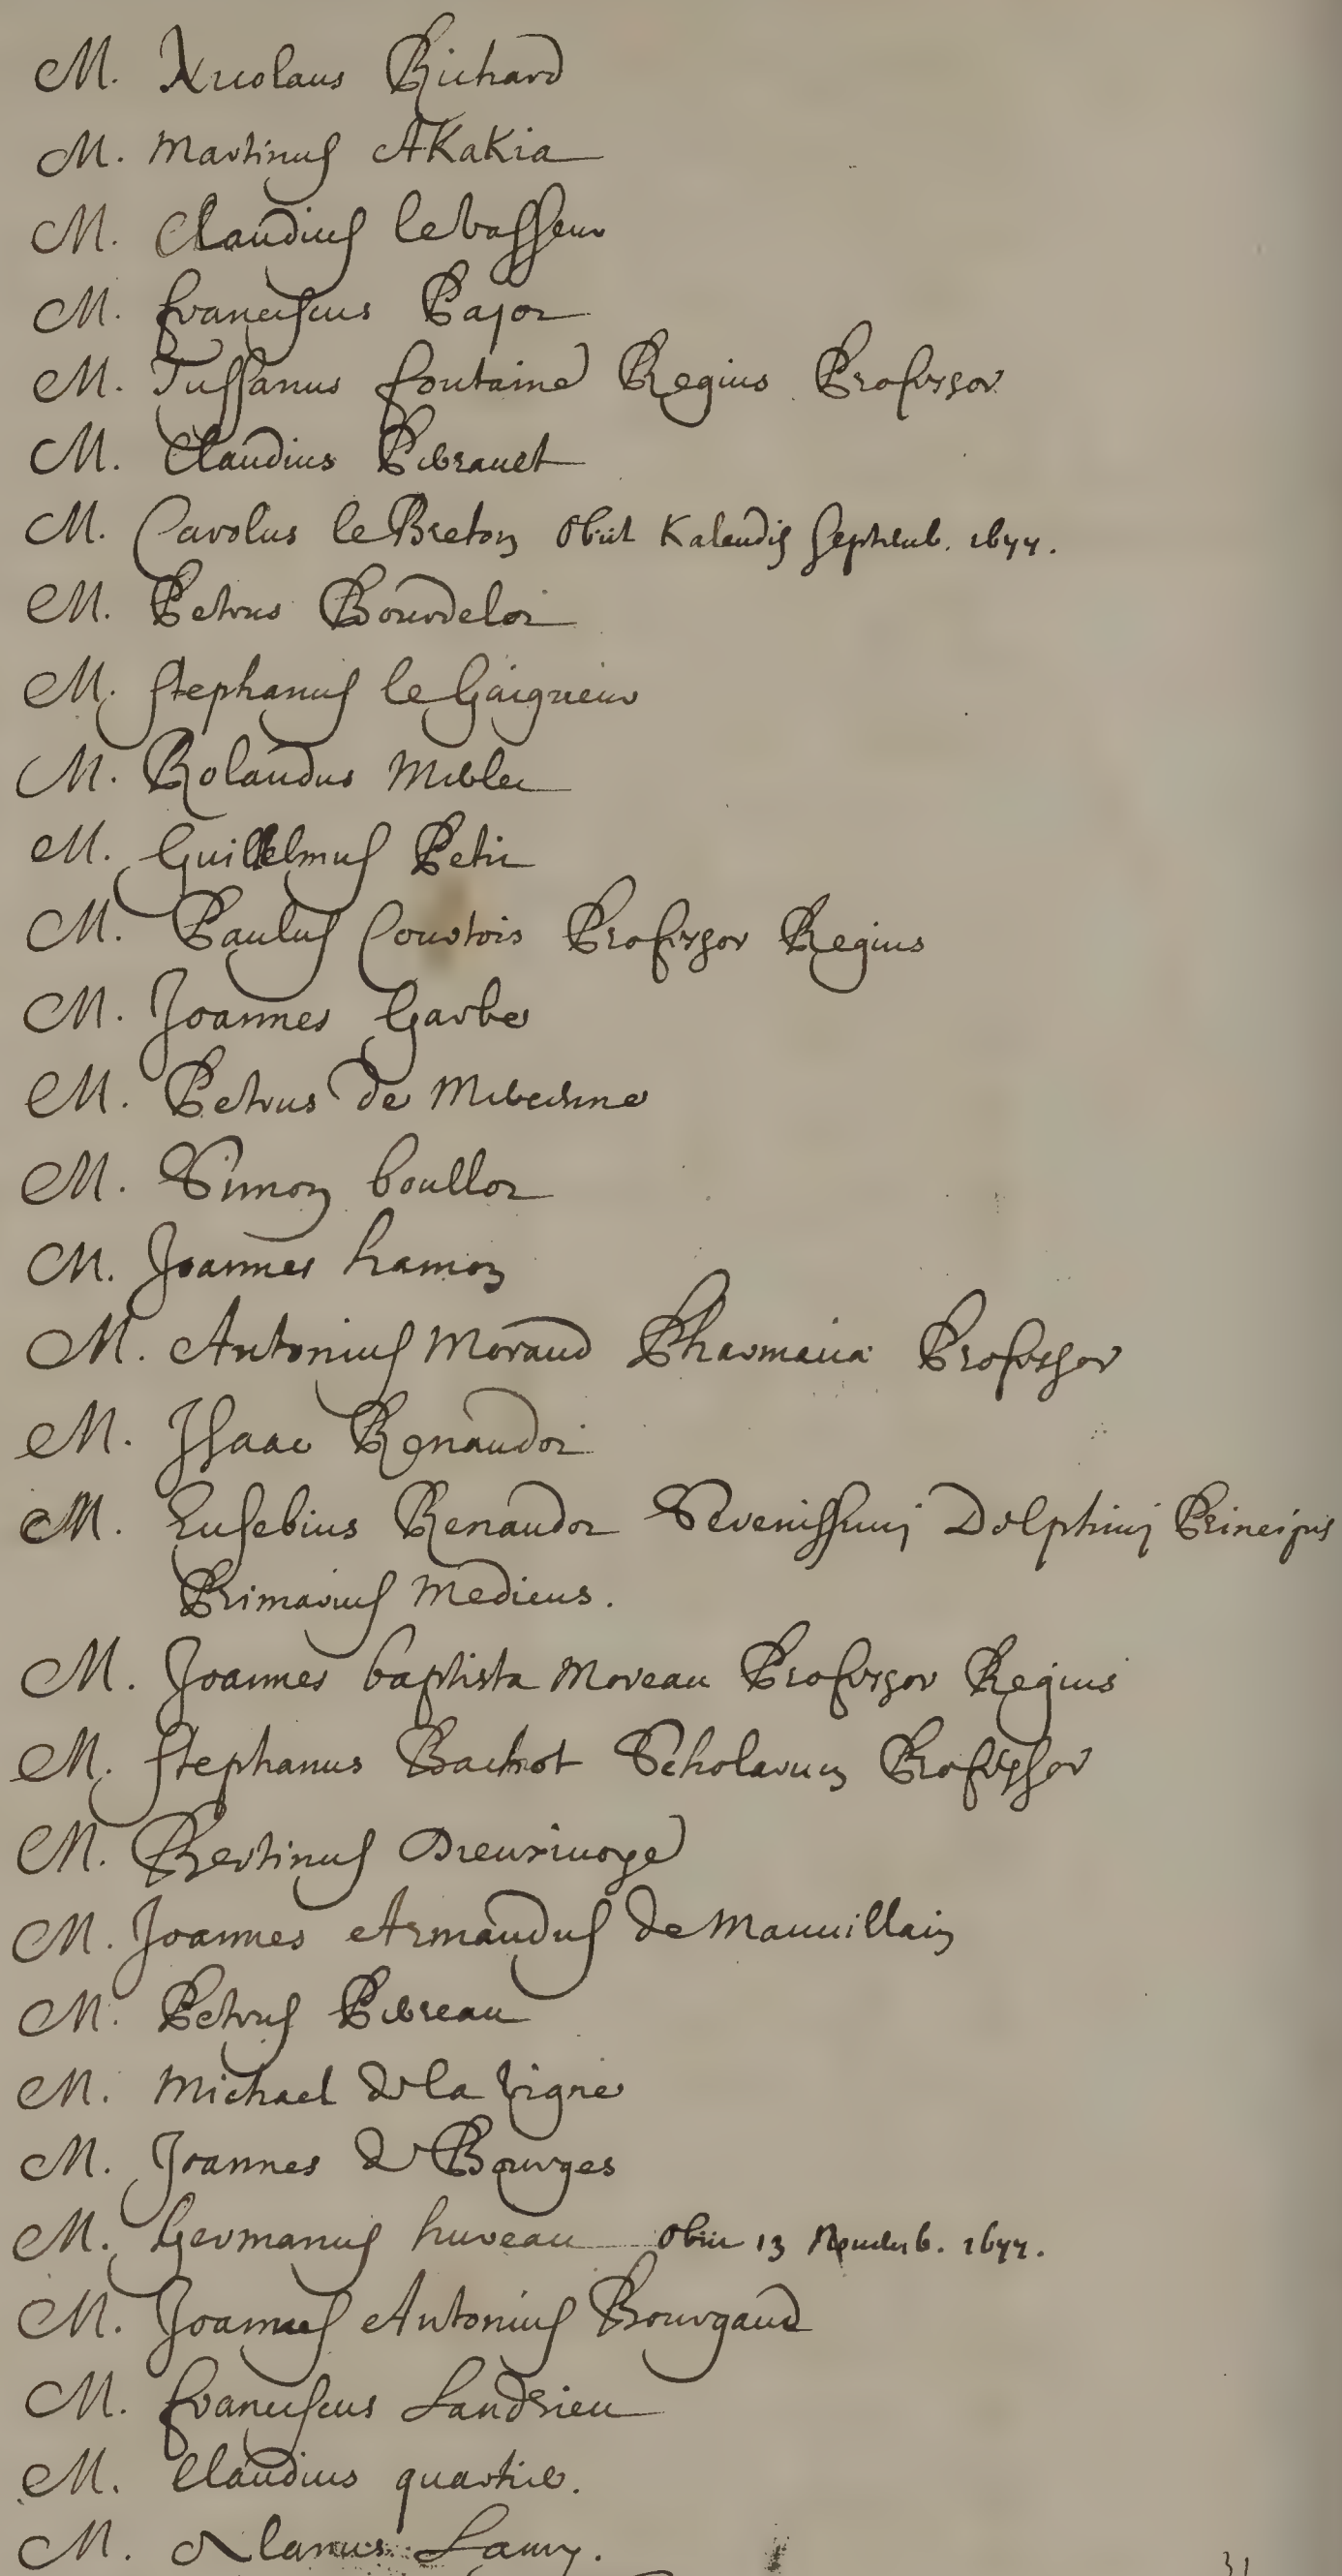 M. Nicolaus Richard
M. Martinus Akakia
M. Claudius le vasseur
M. franciscus Pajot
M. Tussanus fontaine Regius Professor
M. Claudius Perrault
M. Carolus le Breton Obiit Kalendis Septemb. 1677.
M. Petrus Bourdelot
M. Stephanus le Gaigneur
M. Rolandus Merlet
M. Guillelmus Petit
M. Paulus Courtois Professor Regius
M. Joannes Garbe
M. Petrus de Mercenne
M. Simon boullot
M. Joannes hamon
M. Antonius Morand Pharmaciæ Professor
M. Isaac Renaudot
M. Eusebius Renaudot Serenissimi Delphini Principis
Primarius Medicus.
M. Joannes baptista Moreau Professor Regius
M. Stephanus Bachot Scholarum Professor
M. Bertinus Dieuxivoye
M. Joannes Armandus de Mauvillain
M. Petrus Perreau
M. Michael de la vigne
M. Joannes de Bourges
M. Germanus hureau Obiit 13 Novemb. 1677.
M. Joannes Antonius Bourgaud
M. franciscus Landrieu
M. Claudius quartier.
M. Alanus Lamy.
31